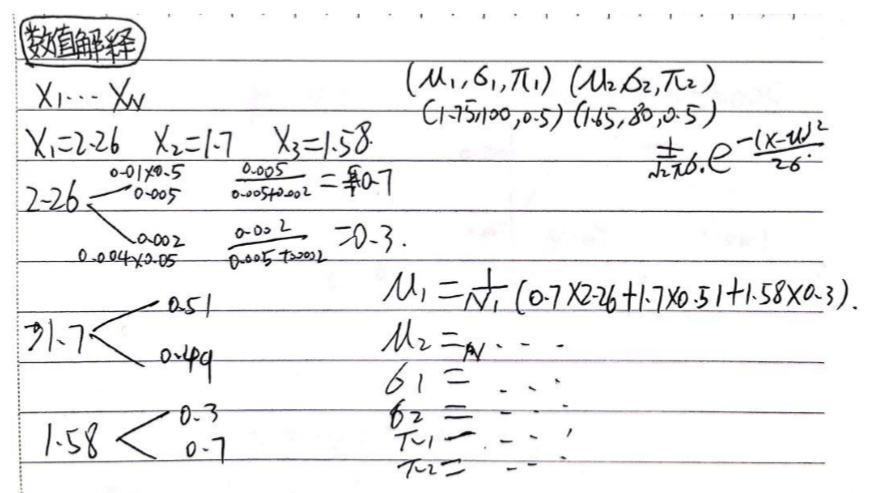 数值解释
X₁⋯ X_N
(μ₁,σ₁,π₁) (μ₂,σ₂,π₂)
(1.75,100,0.5) (1.65,80,0.5)
X₁=2.26 X₂=1.7 X₃=1.58.
1/√2πσ · e^(-(x-μ)²/2σ)
2.26
0.01×0.5
0.005
0.005/(0.005+0.002) = 0.7
0.002
0.004×0.05
0.002/(0.005+0.002) =0.3.
1.7
0.51
0.49
1.58
0.3
0.7
μ₁ = 1/N₁ (0.7×2.26+1.7×0.51+1.58×0.3).
μ₂ = ⋯
σ₁ = ⋯
σ₂ = ⋯
π₁ = ⋯
π₂ = ⋯